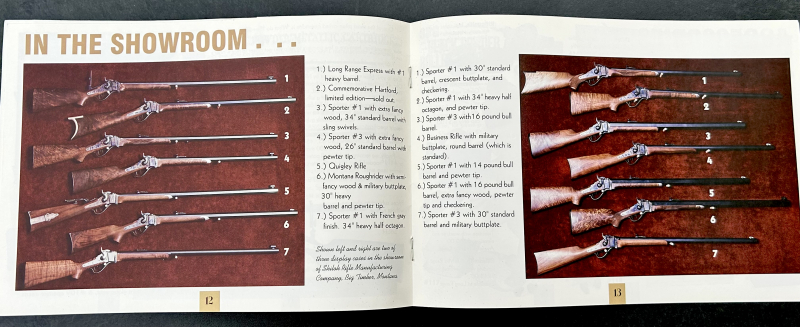 IN THE SHOWROOM . . .
1
2
3
4
5
6
7
1.) Long Range Express with #1
heavy barrel.
2.) Commemorative Hartford,
limited edition—sold out.
3.) Sporter #1 with extra fancy
wood, 34" standard barrel with
sling swivels.
4.) Sporter #3 with extra fancy
wood, 26" standard barrel with
pewter tip.
5.) Quigley Rifle
6.) Montana Roughrider with semi-
fancy wood & military buttplate,
30" heavy
barrel and pewter tip.
7.) Sporter #1 with French gray
finish. 34" heavy half octagon.
Shown left and right are two of
three display cases in the showroom
of Shiloh Rifle Manufacturing
Company, Big Timber, Montana
12
1.) Sporter #1 with 30" standard
barrel, crescent buttplate, and
checkering.
2.) Sporter #1 with 34" heavy half
octagon, and pewter tip.
3.) Sporter #3 with16 pound bull
barrel.
4.) Business Rifle with military
buttplate, round barrel (which is
standard).
5.) Sporter #1 with 14 pound bull
barrel and pewter tip.
6.) Sporter #1 with 16 pound bull
barrel, extra fancy wood, pewter
tip and checkering.
7.) Sporter #3 with 30" standard
barrel and military buttplate.
1
2
3
4
5
6
7
13